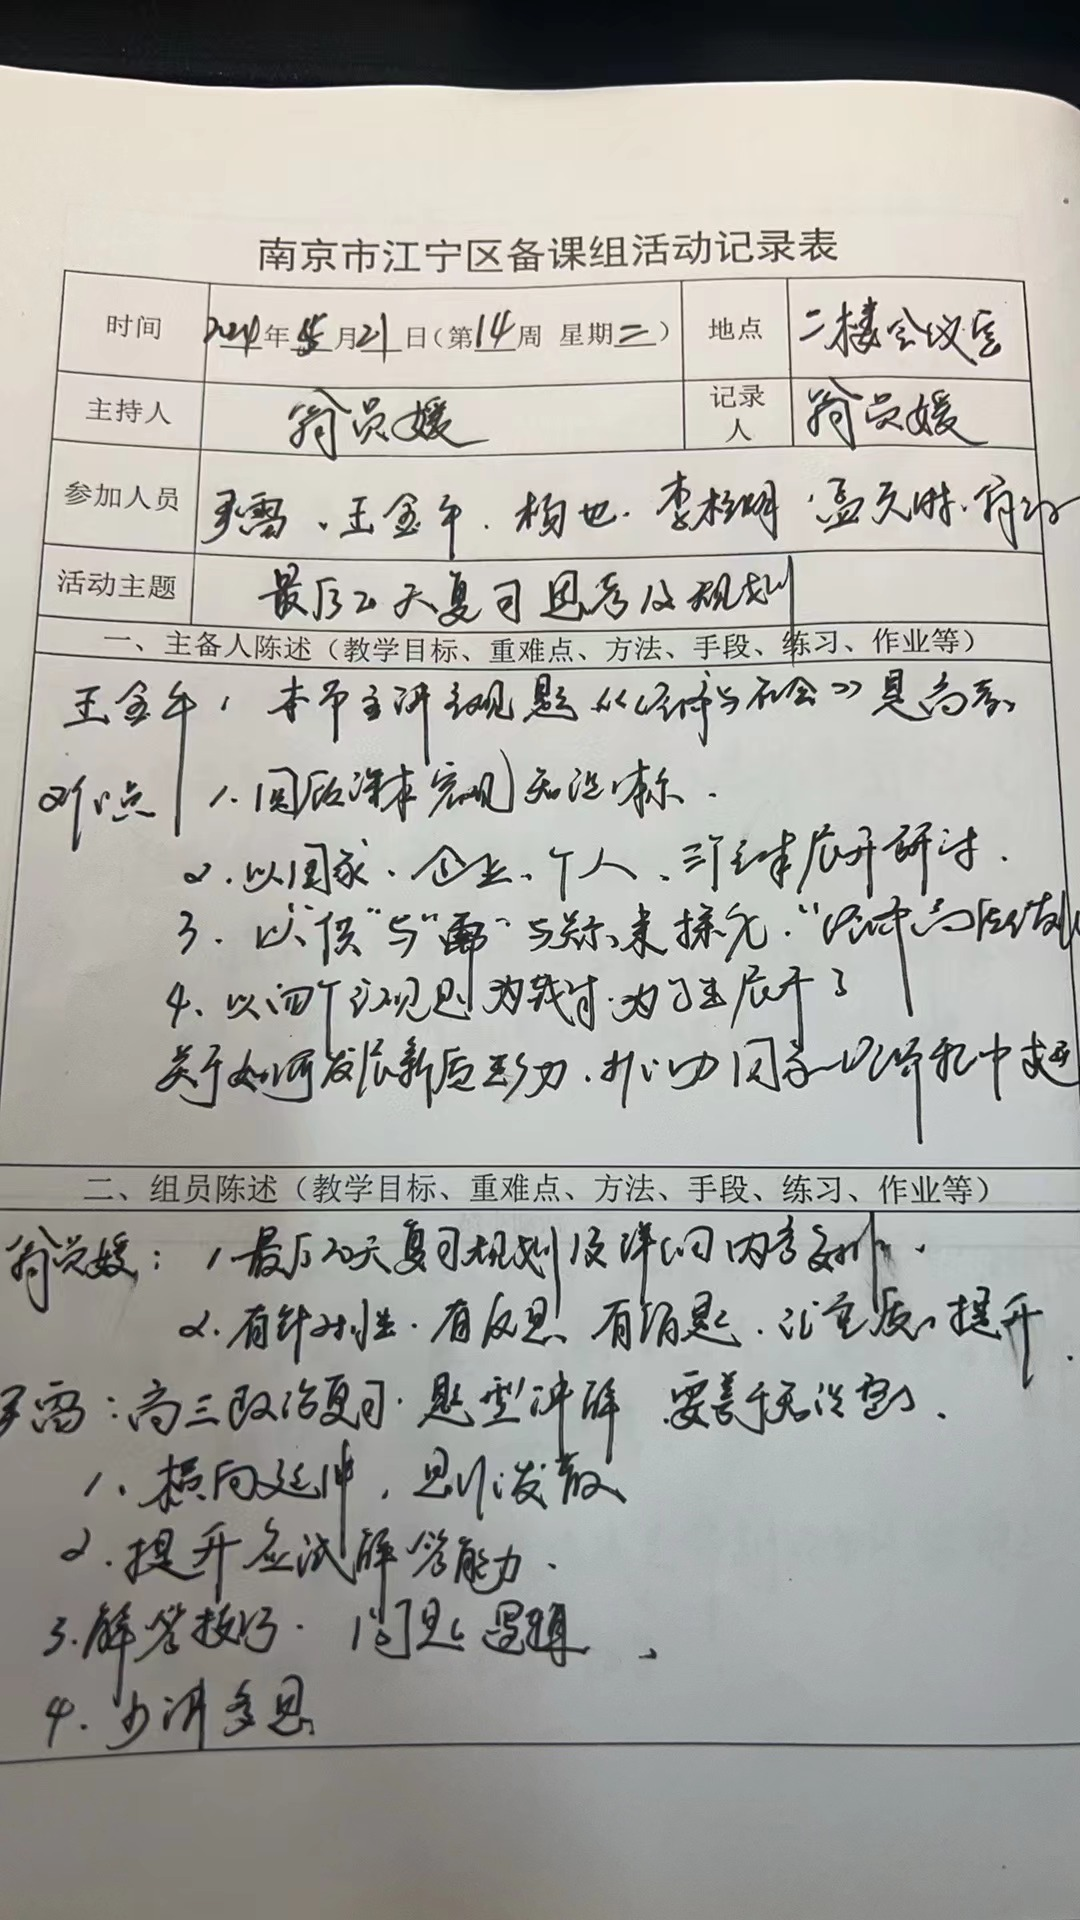 南京市江宁区备课组活动记录表
时间 2024年5月21日(第14周 星期二) 地点 二楼会议室
主持人 翁员媛 记录人 翁员媛
参加人员 罗雷、王金午、杨也、李桂明、孟天时、
活动主题 最后20天复习思考及规划
一、主备人陈述(教学目标、重难点、方法、手段、练习、作业等)
王金午: 本节主讲主观题《经济与社会》是高考
难点 1.回归课本宏观知识体系.
2.以国家、企业、个人、三个主体展开研讨.
3.以"供"与"需"与关系来探究."经济高质
4.以四个主观题为载体.为学生展开了
关于如何发展新质生产力.
二、组员陈述(教学目标、重难点、方法、手段、练习、作业等)
翁员媛: 1.最后20天复习规划及详细内容
2.有针对性.有反思 有消息.注重质 提升.
罗雷:高三政治复习.题型讲解 要善于
1、横向延伸,思维发散
2.提升应试解答能力.
3.解答技巧. 问题逻辑、
4.少讲多思